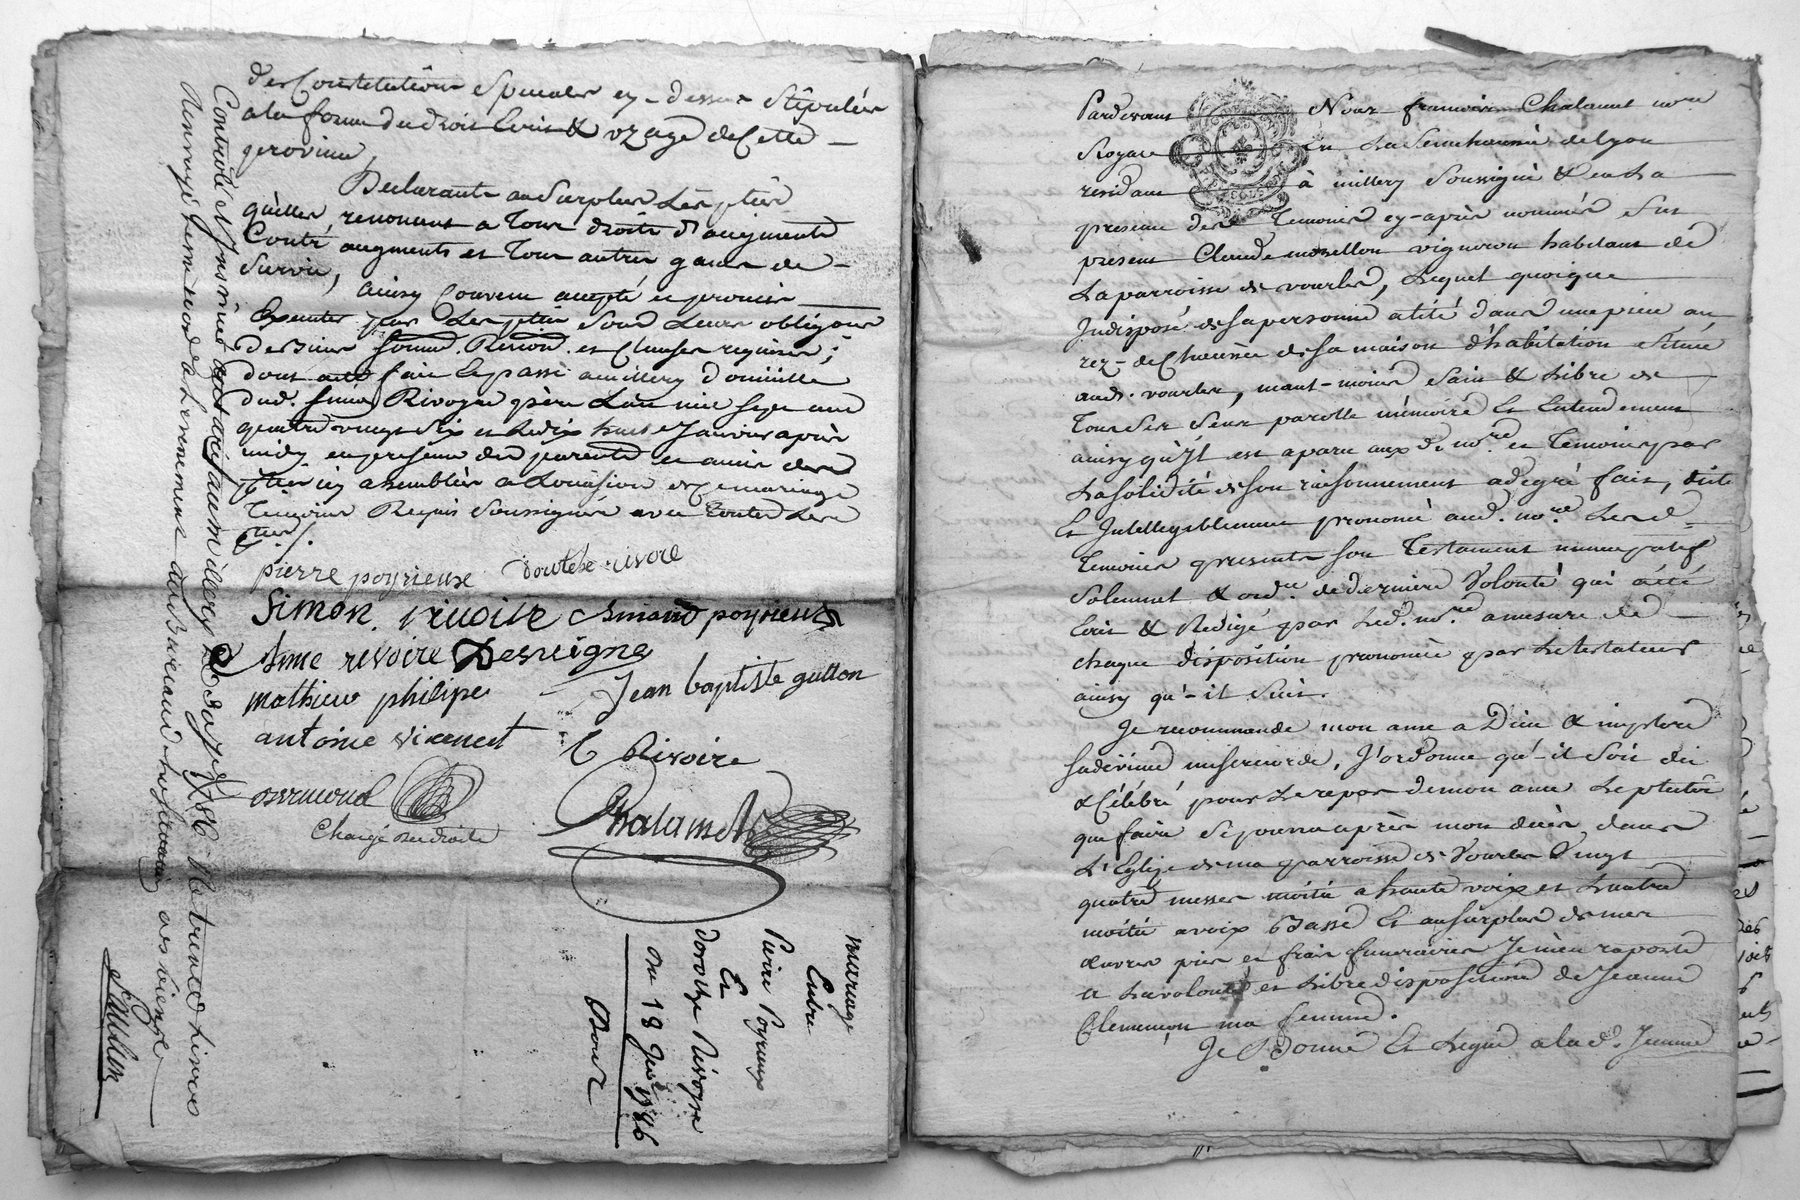 des Constitutions Speciales cy-dessus Stipulées
a la forme du droit Ecrit & uzage de Cette
province,
Declarants au Surplus Les ptiés
qu'elles renoncent a Tous droits d'augments
Contr'augments et Tous autres gains de
Survie,
ainsy Convenu accepté et promis
Executer par Les pties Sous Leurs obligaons
de Biens Soumis. Renon. et Clauses requises;
dont acte fait & passé a millery domicille
dud. Simon Rivoyre père L'an mil sept cent
quatre vingt Six et Le dix huit Janvier après
midy en presence des parents et amis des
pties icy assemblés a L'ocasion de Ce mariage
Temoins Requis Soussignés avec Toutes Les
pties.
pierre poyrieuxe dorothé rivore
Simon rivoire Amand poyrieux
Aime revoire Desvigne
mathieu philipe Jean baptiste gutton
antoine vicenest
C Rivoire
Chalamel
Chargé des droits
Controlé & Insinué a millery Le
mariage
Entre
Pierre Poyrieux
Et
dorothze Rivoyre
Du 18 Janr 1786
Bour
Pardevant Nous francois Chalamel nore
Royale En La Senechaussée de Lyon
residant à millery Soussigné & en La
presence des Temoins cy-après nommés Fut
present Claude morellon vigneron habitant de
La parroisse de vourles, Lequel quoique
Indisposé de sa personne alité dans une piece au
rez-de Chaussée de sa maison d'habitation Située
aud. vourles, neant-moins Sain & Libre de
Tous Ses Sens parolle mémoire Et Entendement
ainsy qu'il est aparu aux d. nore et Temoins par
La solidité de son raisonnement a degré fait, dicté
Et Intelligiblement prononcé aud. nore. Les d.
Temoins presents son Testament nuncupatif
Solennel & ordre. de derniere Volonté qui a été
Ecrit & Redigé par Led. nore. a mesure de
chaque disposition prononcée par Le testateur
ainsy qu'-il Suit.
Je recommande mon ame a Dieu & implore
Sa divine misericorde, J'ordonne qu'-il Soit dit
& Célébré pour Le repos de mon ame Le plutôt
que faire Se pourra après mon decès dans
L'Eglize de ma parroisse de Vourles Vingt
quatre messes moitié a haute voix et L'autre
moitié a voix Basse Et au Surplus de mes
œuvres pies et frais funeraires Je m'en raporte
a La volonté et Libre disposition de Jeanne
Clemençon ma femme.
Je Donne Et Legue a lad. Jeanne